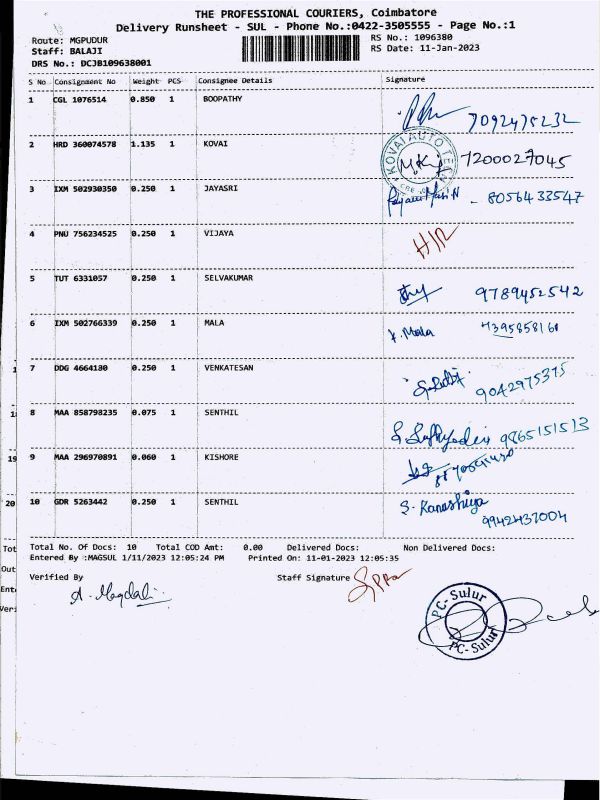 THE PROFESSIONAL COURIERS, Coimbatore
Delivery Runsheet - SUL - Phone No.:0422-3505555 - Page No.:1
Route: MGPUDUR
Staff: BALAJI
DRS No.: DCJB109638001
RS No.: 1096380
RS Date: 11-Jan-2023
S No Consignment No Weight PCS Consignee Details Signature
1 CGL 1076514 0.850 1 BOOPATHY 7092475232
2 HRD 360074578 1.135 1 KOVAI 7200027045
KOVAI AUTO TECH
3 IXM 502930350 0.250 1 JAYASRI - 8056433547
4 PNU 756234525 0.250 1 VIJAYA
5 TUT 6331057 0.250 1 SELVAKUMAR 9789452542
6 IXM 502766339 0.250 1 MALA Mala
7 DDG 4664180 0.250 1 VENKATESAN 9042975375
8 MAA 858798235 0.075 1 SENTHIL 9865151513
9 MAA 296970891 0.060 1 KISHORE
10 GDR 5263442 0.250 1 SENTHIL S. 9942437004
Total No. Of Docs: 10 Total COD Amt: 0.00 Delivered Docs: Non Delivered Docs:
Entered By :MAGSUL 1/11/2023 12:05:24 PM Printed On: 11-01-2023 12:05:35
Verified By Staff Signature
A. Magdali
PC-Sulur
PC-Sulur
19
20
Tot
Out
Ent
Veri